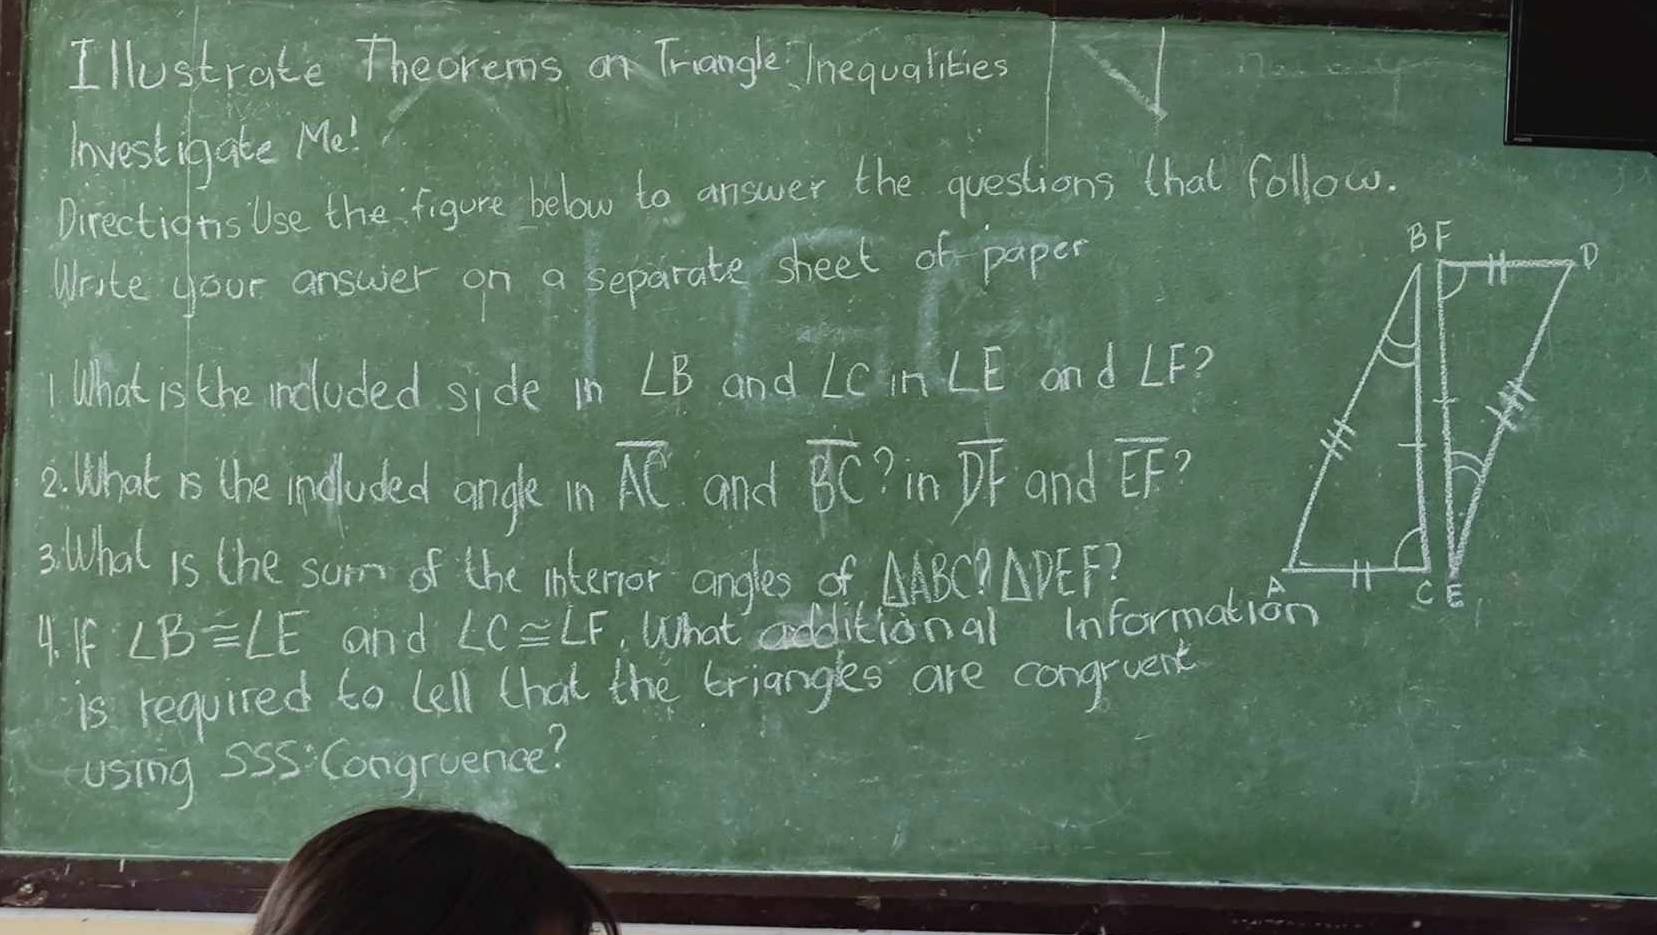 Illustrate Theorems on Triangle Inequalities
Investigate Me!
Directions: Use the figure below to answer the questions that follow.
Write your answer on a separate sheet of paper
1. What is the included side in ∠B and ∠C in ∠E and ∠F?
2. What is the included angle in A̅C̅ and B̅C̅? in D̅F̅ and E̅F̅?
3. What is the sum of the interior angles of △ABC? △DEF?
4. If ∠B ≅ ∠E and ∠C ≅ ∠F, What additional Information
is required to tell that the triangles are congruent
using SSS Congruence?
B F D
A C E